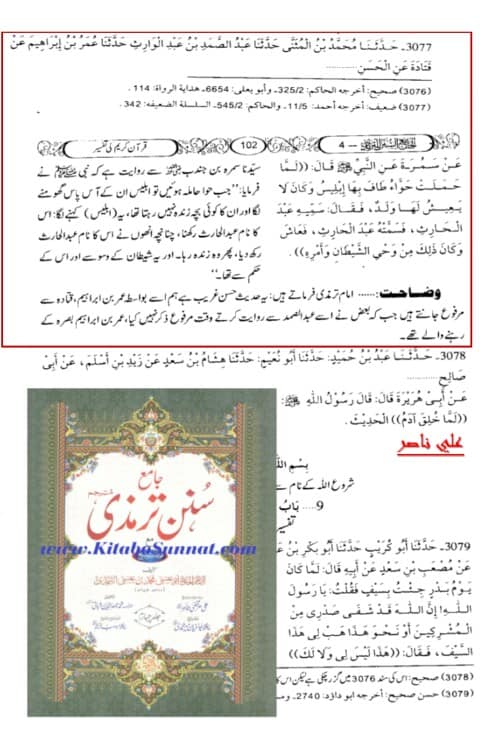 3077۔ حَدَّثَنَا مُحَمَّدُ بْنُ الْمُثَنَّى حَدَّثَنَا عَبْدُ الصَّمَدِ بْنُ عَبْدِ الْوَارِثِ حَدَّثَنَا عُمَرُ بْنُ إِبْرَاهِيمَ عَنْ
قَتَادَةَ عَنِ الْحَسَنِ
(3076) صحيح: أخرجه الحاكم: 325/2۔ وأبو يعلى: 6654۔ هداية الرواة: 114 .
(3077) ضعيف: أخرجه أحمد: 11/5۔ والحاكم: 545/2۔ السلسلة الضعيفه: 342.
4 —
102
قرآن کریم کی تفسیر
عَنْ سَمُرَةَ عَنِ النَّبِيِّ ﷺ قَالَ: ((لَمَّا
حَمَلَتْ حَوَّاءُ طَافَ بِهَا إِبْلِيسُ وَكَانَ لَا
يَعِيشُ لَهَا وَلَدٌ، فَقَالَ: سَمِّيهِ عَبْدَ
الْحَارِثِ، فَسَمَّتْهُ عَبْدَ الْحَارِثِ، فَعَاشَ
وَكَانَ ذَلِكَ مِنْ وَحْيِ الشَّيْطَانِ وَأَمْرِهِ)).
سیدنا سمرہ بن جندب رضی اللہ عنہ سے روایت ہے کہ نبی ﷺ نے
فرمایا: ”جب حوا حاملہ ہوئیں تو ابلیس ان کے آس پاس گھومنے
لگا اور ان کا کوئی بچہ زندہ نہیں رہتا تھا، یہ (ابلیس) کہنے لگا: اس
کا نام عبدالحارث رکھنا، چنانچہ انھوں نے اس کا نام عبدالحارث
رکھ دیا، پھر وہ زندہ رہا۔ اور یہ شیطان کے وسوسے اور اس کے
حکم سے تھا۔“
وضاحت:...... امام ترمذی فرماتے ہیں: یہ حدیث حسن غریب ہے ہم اسے بواسطہ عمر بن ابراہیم، قتادہ سے
مرفوع جانتے ہیں جب کہ بعض نے اسے عبدالصمد سے روایت کرتے وقت مرفوع ذکر نہیں کیا، عمر بن ابراہیم بصرہ کے
رہنے والے تھے۔
3078۔ حَدَّثَنَا عَبْدُ بْنُ حُمَيْدٍ: حَدَّثَنَا أَبُو نُعَيْمٍ: حَدَّثَنَا هِشَامُ بْنُ سَعْدٍ عَنْ زَيْدِ بْنِ أَسْلَمَ، عَنْ أَبِي
صَالِحٍ
عَنْ أَبِي هُرَيْرَةَ قَالَ: قَالَ رَسُولُ اللَّهِ ﷺ:
((لَمَّا خُلِقَ آدَمُ)) الْحَدِيثَ.
علي ناصر
بِسْمِ اللَّهِ
شروع اللہ کے نام سے
9 .... بَابٌ
تفسیر
3079۔ حَدَّثَنَا أَبُو كُرَيْبٍ حَدَّثَنَا أَبُو بَكْرِ بْنُ
عَنْ مُصْعَبِ بْنِ سَعْدٍ عَنْ أَبِيهِ قَالَ: لَمَّا كَانَ
يَوْمُ بَدْرٍ جِئْتُ بِسَيْفٍ فَقُلْتُ: يَا رَسُولَ
اللَّهِ! إِنَّ اللَّهَ قَدْ شَفَى صَدْرِي مِنَ
الْمُشْرِكِينَ أَوْ نَحْوَ هَذَا هَبْ لِي هَذَا
السَّيْفَ، فَقَالَ: ((هَذَا لَيْسَ لِي وَلَا لَكَ))
(3078) صحيح: اس کی سند 3076 میں گزر چکی ہے لیکن اس
(3079) حسن صحيح: أخرجه أبو داؤد: 2740۔
جامع
سنن ترمذی
مترجم
www.KitaboSunnat.com